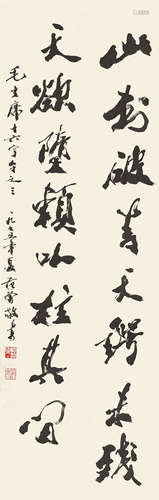 山刺破青天鍔未殘
天欲墮賴以柱其間
毛主席十六字令之三 一九七五年夏 敬書